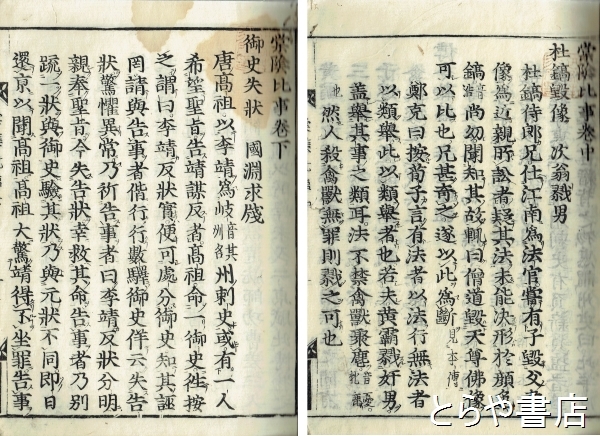 棠陰比事卷中
杜鎬毀像 次翁戮男
杜鎬侍郎兄仕江南為法官嘗有子毀父畫
像為近親所訟者疑其法未能決形於顏色
鎬尚幼聞知其故輒曰僧道毀天尊佛像
可以比也兄甚奇之遂以此為斷見本傳
鄭克曰按荀子言有法者以法行無法者
以類舉此以類舉者也若夫黃霸戮奸男
蓋舉其事之類耳法不禁禽獸聚麀音憂
也然人殺禽獸無罪則戮之可也
棠陰比事卷下
御史失狀 國淵求牋
唐高祖以李靖為岐音其州名州刺史或有一人
希望聖旨告靖謀反者高祖命一御史往按
之謂曰李靖反狀實便可處分御史知其誣
罔請與告事者偕行行數驛御史佯云失告
狀驚懼異常乃祈告事者曰李靖反狀分明
親奉聖旨今失告狀幸救其命告事者乃別
疏一狀與御史驗其狀乃與元狀不同即日
還京以聞高祖高祖大驚靖得不坐罪告事
とらや書店